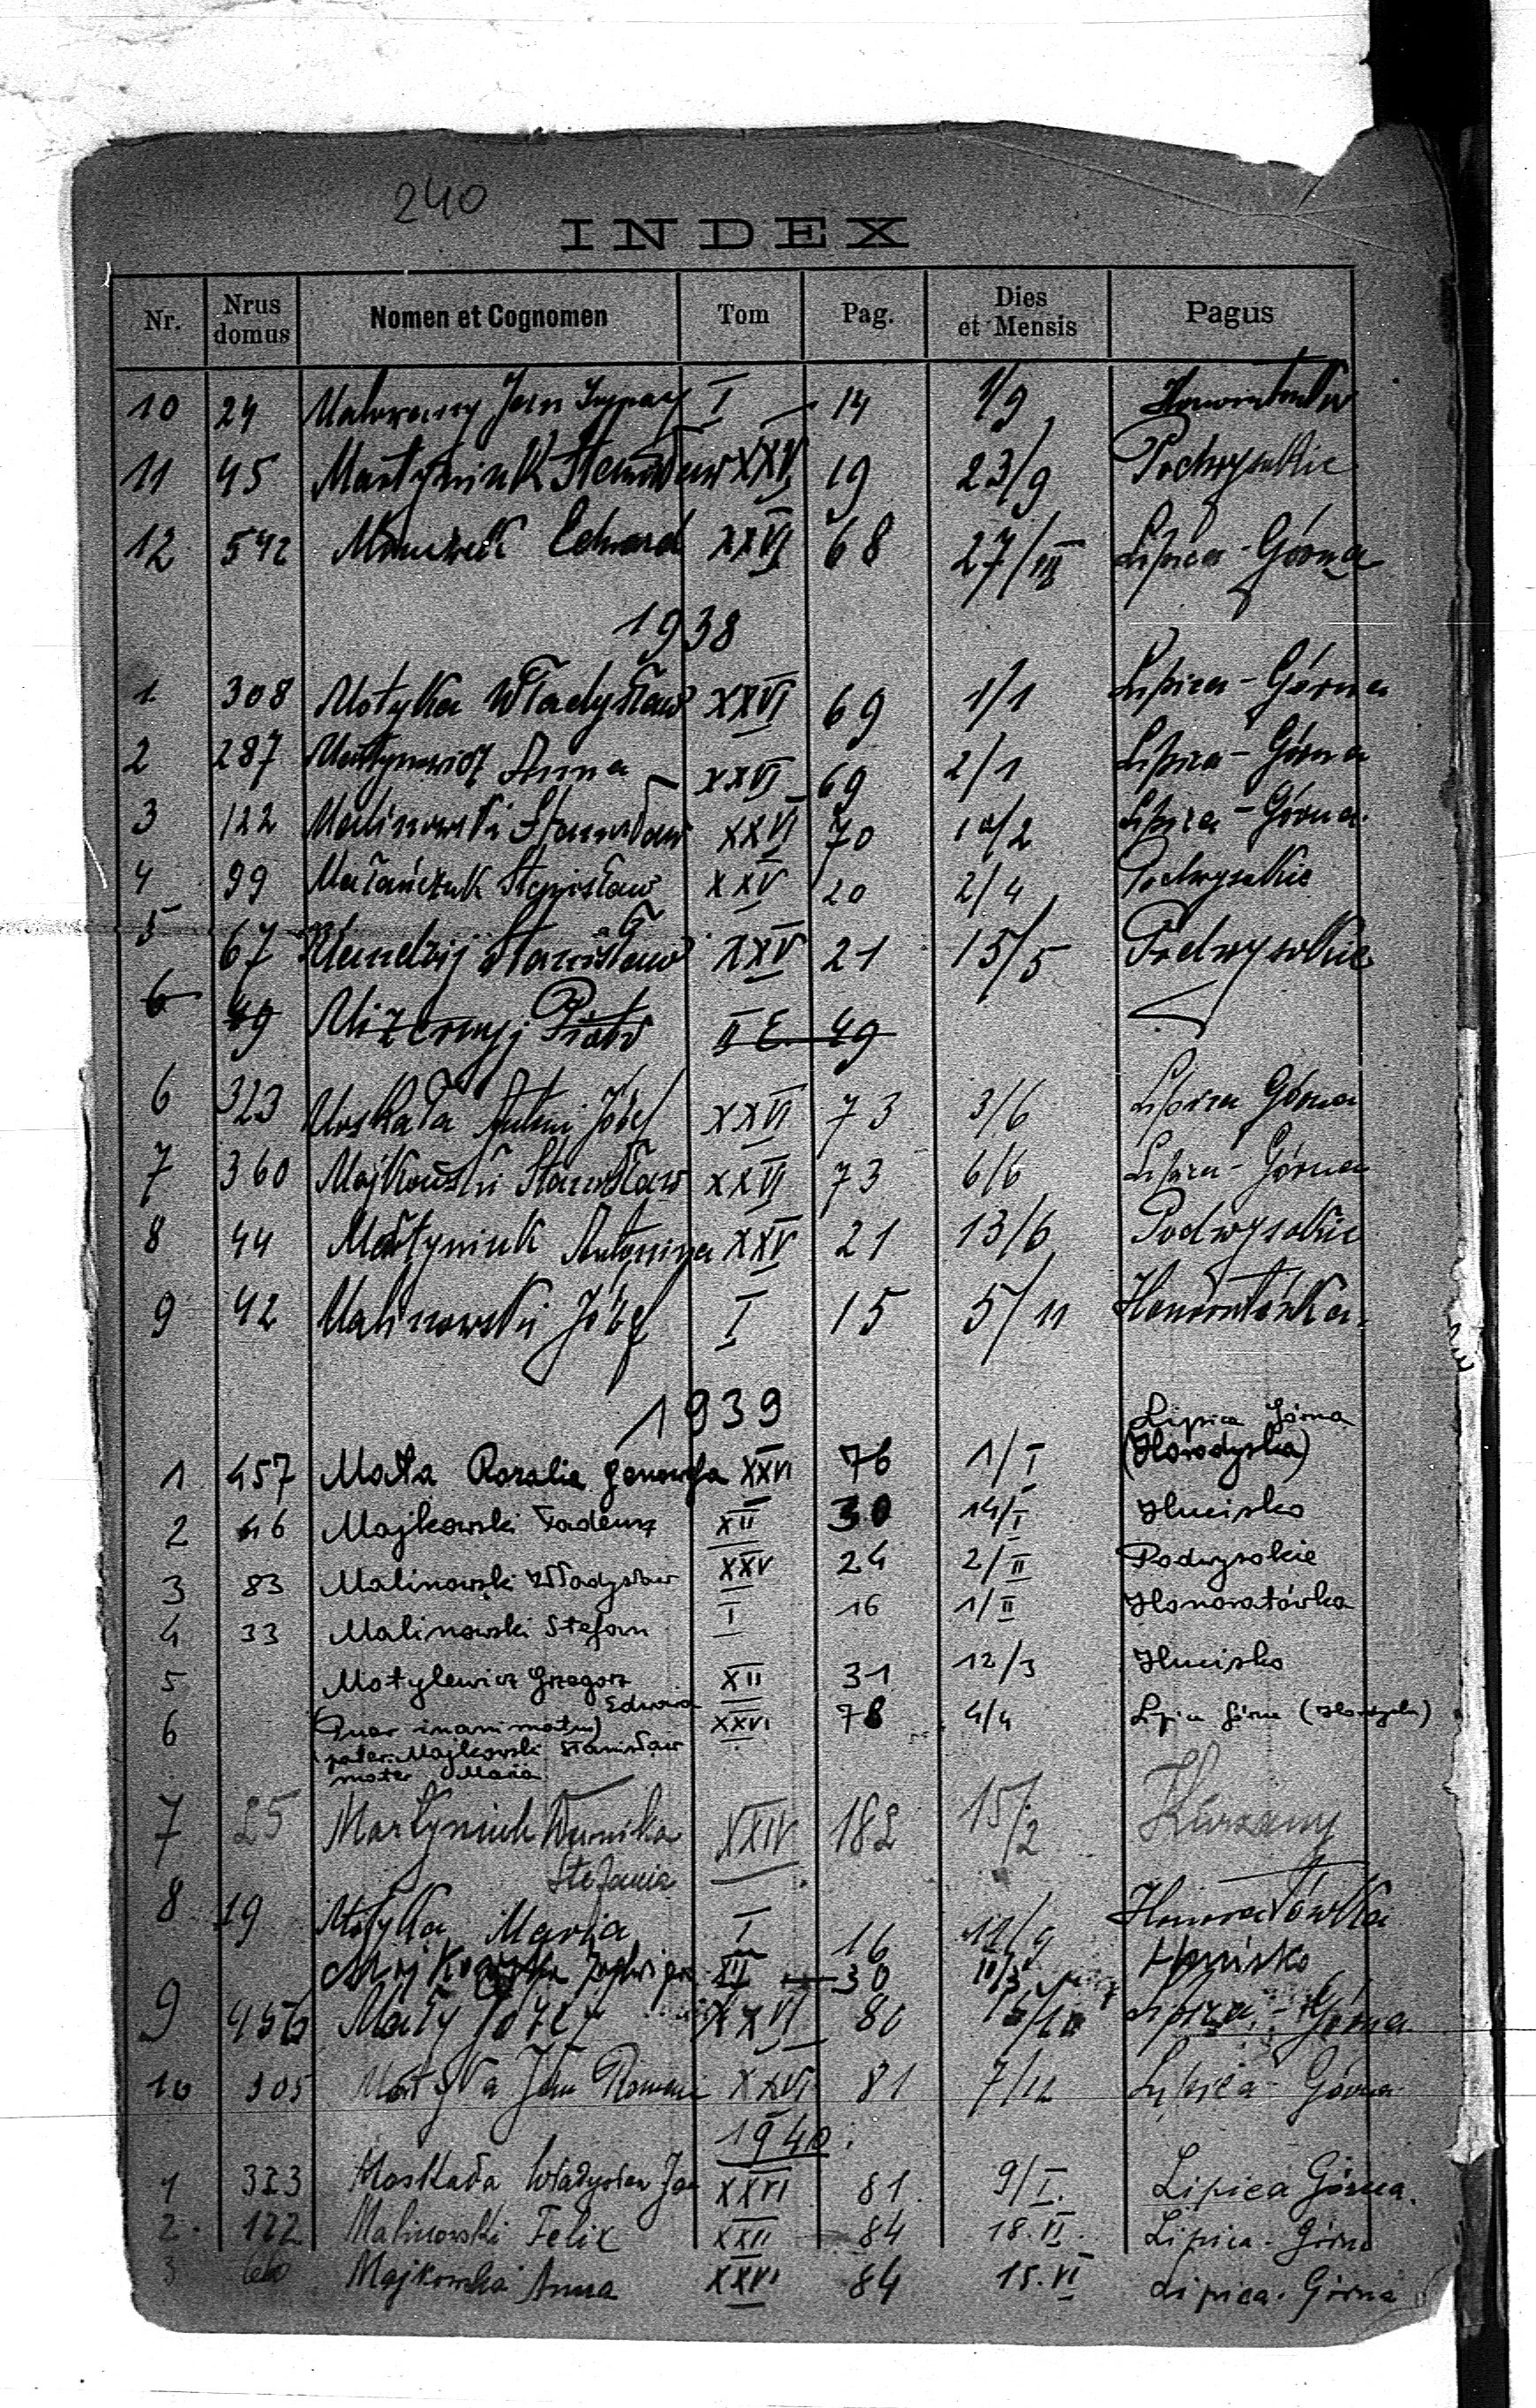 240
INDEX
Nr. Nrus domus Nomen et Cognomen Tom Pag. Dies et Mensis Pagus
10 24 Jan I 14 1/9
11 45 Martyniuk Stanisław XXV 19 23/9 Podwysokie
12 542 Edward XXVI 68 27/III Lipica-Górna
1938
1 308 Motyka Władysław XXVI 69 1/1 Lipica-Górna
2 287 Anna XXVI 69 2/1 Lipica-Górna
3 122 Malinowski Stanisław XXVI 70 /2 Lipica-Górna
4 99 Stanisław XXV 20 2/4 Podwysokie
5 67 Stanisław XXV 21 15/5 Podwysokie
6 49 Mizernyj Piotr II E. 49
6 323 Moskała Antoni Józef XXVI 73 3/6 Lipica Górna
7 360 Majkowski Stanisław XXVI 73 6/6 Lipica-Górna
8 44 Martyniuk Antonina XXV 21 13/6 Podwysokie
9 42 Malinowski Józef I 15 5/11 Honoratówka
1939
Lipica Górna
1 457 Mała Rozalia Genowefa XXVI 76 1/I (Horodyska)
2 46 Majkowski Tadeusz XII 30 14/I Hucisko
3 83 Malinowski Władysław XXV 24 2/II Podwysokie
4 33 Malinowski Stefan I 16 1/II Honoratówka
5 Motylewicz Grzegorz XII 31 12/3 Hucisko
Edward
6 (Puer inanimatus) XXVI 78 4/4 Lipica Górna
pater: Majkowski Stanisław
mater Maria
7 25 Martyniuk Weronika XXIV 182 15/2 Kurzany
Stefania
8 19 Motyka Maria I 16 /9 Honoratówka
XII 30 Hucisko
9 456 Mały Józef XXVI 80 Lipica-Górna
10 305 Motyka Jan Roman XXVI 81 7/12 Lipica-Górna
1940.
1 323 Moskała Władysław Jan XXVI 81. 9/I. Lipica Górna.
2. 122 Malinowski Felix 84 18.VI. Lipica-Górna
3 Majkowska Anna XXVI 84 15.VI Lipica-Górna